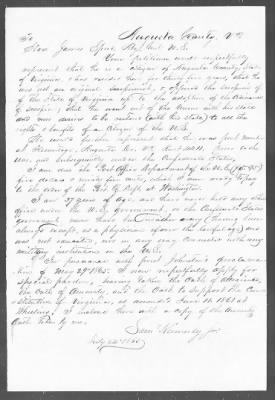 Augusta County, Va
To
Hon James Speed Atty Genl U.S.
Your petitioner would respectfully
represent that he is a citizen of Augusta County, State
of Virginia, & has resided here for thirty five years, that he
was not an original secessionist, & opposed the secession of
of the State of Virginia up to the adoption of the Ordinance
of secession; that he went out of the Union with his State
and now desires to be restored (with his State) to all the
rights & benefits of a Citizen of the U.S.
He would further represent that he was post master
at Va. under the
U.S. and subsequently under the Confederate States,
I am due the Post Office Department of the U.S.
five dollars & cents for which I am ready
to the order of the Post Off. Dept. at Washington.
I am 37 years of age, and have never held any other
office under the U.S. government, or the Confederate States
government in any way (having been
always exempt, as a physician & under the law) and
was not educated, nor in any way connected with any
military institution in the
In pursuance of prest Johnston's proclama-
tion of May 29th 1865. I now respectfully apply for
special pardon, having taken the Oath of Allegiance,
the Oath of Amnesty, and the Oath to support the Con-
stitution of Virginia, as amended June 11 1861 at
Wheeling. I inclose here with a copy of the Amnesty
Oath taken by me.
Kennedy Jr.
July 22nd 1865